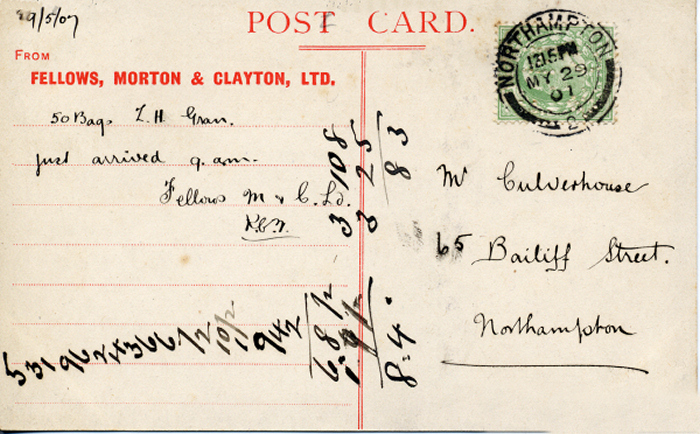 29/5/07
POST CARD.
FROM
FELLOWS, MORTON & CLAYTON, LTD.
50 Bags Z. H. Gran.
just arrived 9. am.
Fellows M & C. Ld.
Mr Culverhouse
65 Bailiff Street.
Northampton
NORTHAMPTON
12.15 PM
MY 29
07
3 10 8
3 2 5
8 3
6. 8 1/2
8 = 4